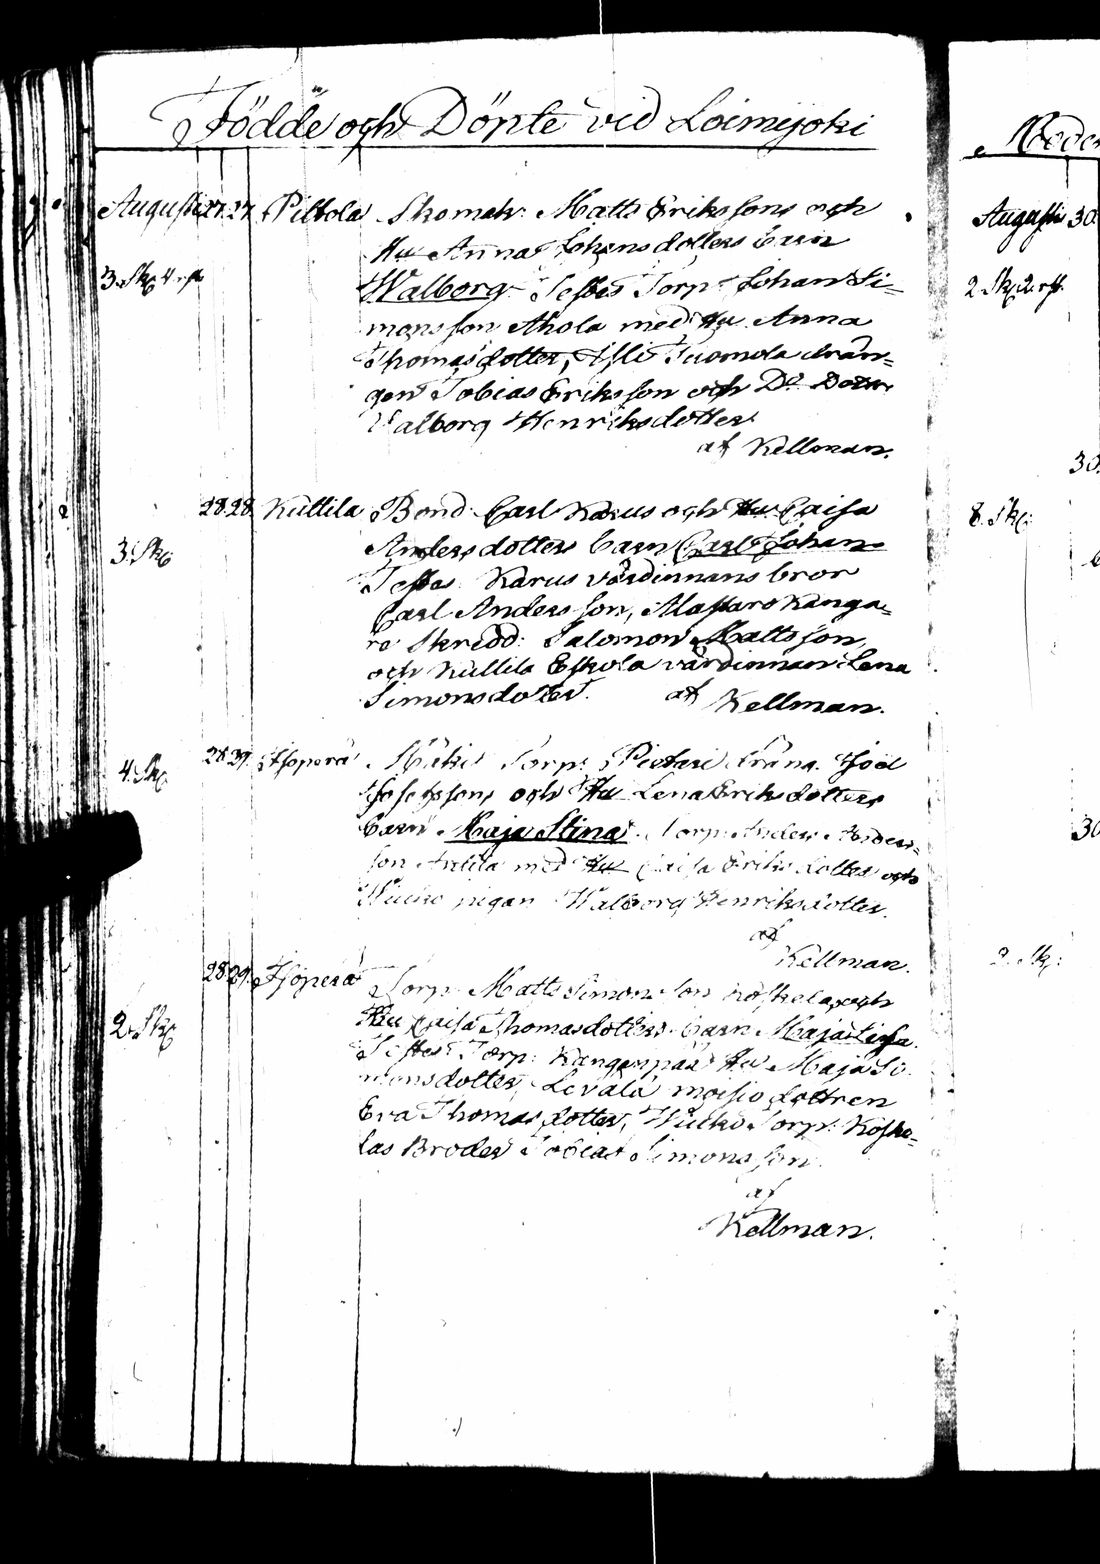 Födde och Döpte vid Loimijoki
Augusti 27. 27. Piltola Skomak: Matts Erikssons och
Hu Anna Johansdotters barn
3. Sk. 4 rst
Walborg. Testes Torp: Johan Si=
monsson Ahola med Hu Anna
Thomasdotter, Tuomola drän=
gen Tobias Eriksson och Do Dottr
Valborg Henriksdotter.
af Kellman.
28. 28. Kullila Bond: Carl Karus och Hu Caisa
3. Sk
Andersdotters barn Carl Johan
Testes: Karus värdinnans bror
Carl Andersson, Kanga=
re Skredd: Salomon Mattsson,
och Kullila Eskola värdinnan Lena
Simonsdotter. af Kellman.
28. 29. Isoperä Mäki Torp: Pietari dräng
4. Sk
och Hu Lena Eriksdotters
barn Maja Stina. Torp: Anders Anders=
son Anttila med Hu Caisa Eriksdotter och
pigan Walborg Henriksdotter.
af
Kellman.
28. 29. Isoperä Torp: Matts Simonsson och
2. Sk
Hu Caisa Thomasdotters barn Maja Lisa.
Testes: Torp: Kangaspää Hu Maja Si=
monsdotter, Levälä moisio dottren
Eva Thomasdotter, Torp: Koske=
las Broder Tobias Simonsson.
af
Kellman.
Augusti 30.
2. Sk. 2. rst.
30
8. Sk:
30
2. Sk: